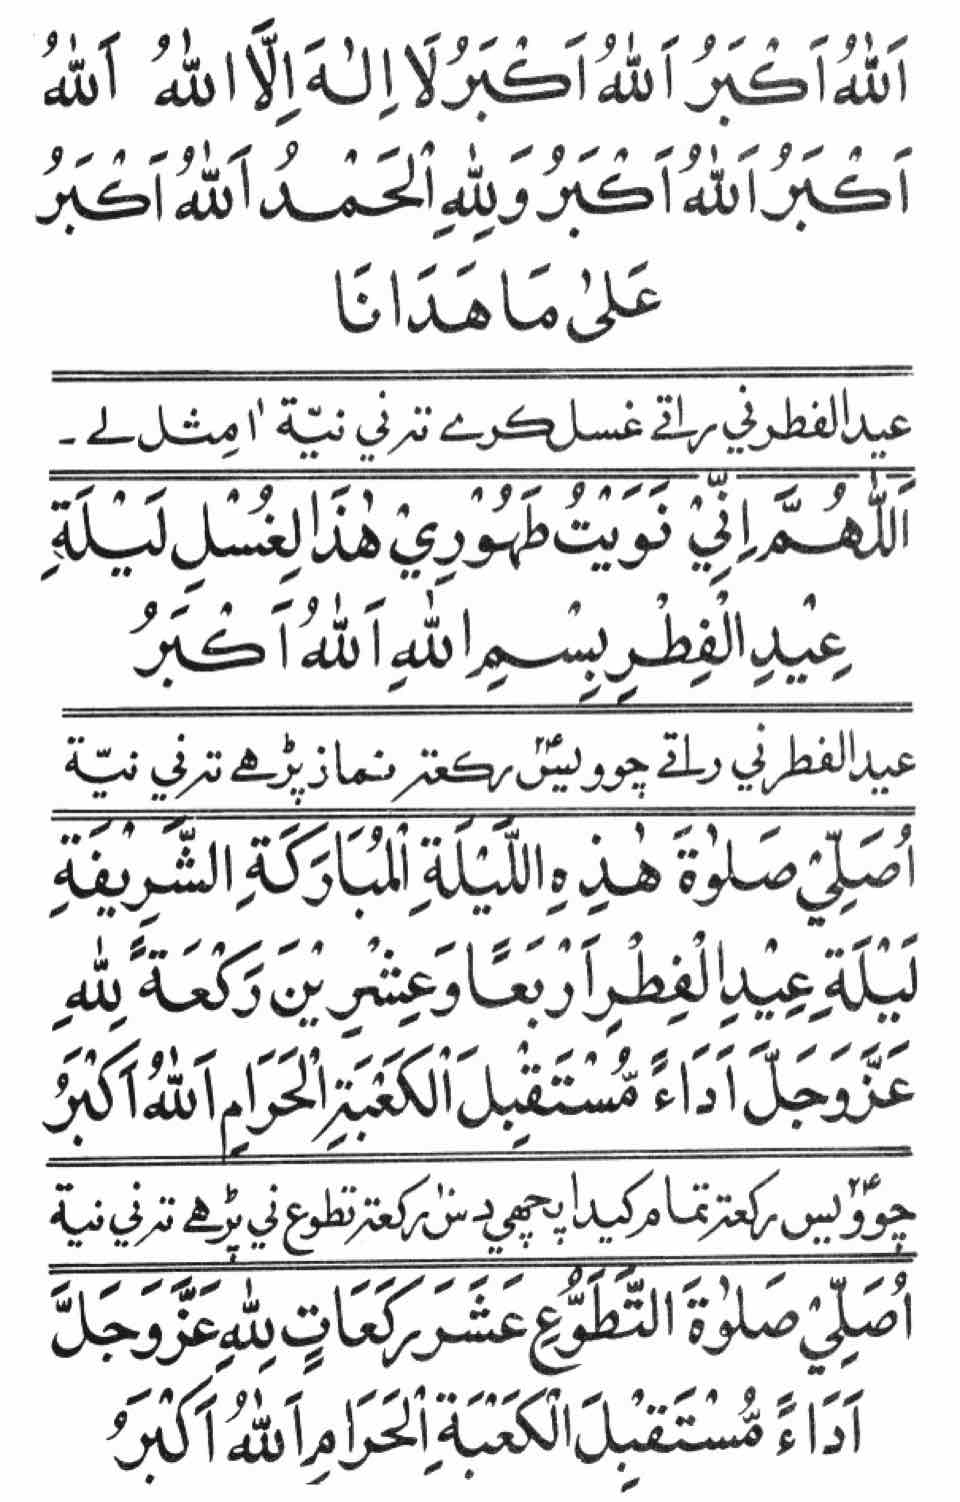 اَللّٰهُ اَكْبَرُ اَللّٰهُ اَكْبَرُ لَا اِلٰهَ اِلَّا اللّٰهُ اَللّٰهُ
اَكْبَرُ اَللّٰهُ اَكْبَرُ وَلِلّٰهِ الْحَمْدُ اَللّٰهُ اَكْبَرُ
عَلٰى مَا هَدَانَا
عيد الفطر ني راتے غسل كرے تہ ني نيّة ا ا مِثل لے ۔
اَللّٰهُمَّ اِنِّيْ نَوَيْتُ طَهُوْرِيْ هٰذَا لِغُسْلِ لَيْلَةِ
عِيْدِ الْفِطْرِ بِسْمِ اللّٰهِ اَللّٰهُ اَكْبَرُ
عيد الفطر ني راتے چوويس۲۴ ركعة نماز پڑهے تہ ني نيّة
اُصَلِّيْ صَلٰوةَ هٰذِهِ اللَّيْلَةِ الْمُبَارَكَةِ الشَّرِيفَةِ
لَيْلَةِ عِيْدِ الْفِطْرِ اَرْبَعًا وَعِشْرِيْنَ رَكْعَةً لِلّٰهِ
عَزَّ وَجَلَّ اَدَاءً مُّسْتَقْبِلَ الْكَعْبَةِ الْحَرَامِ اَللّٰهُ اَكْبَرُ
چوويس۲۴ ركعة تمام كيدا پچهي دس ركعة تطوع ني پڑهے تہ ني نية
اُصَلِّيْ صَلٰوةَ التَّطَوُّعِ عَشَرَ رَكَعَاتٍ لِلّٰهِ عَزَّ وَجَلَّ
اَدَاءً مُّسْتَقْبِلَ الْكَعْبَةِ الْحَرَامِ اَللّٰهُ اَكْبَرُ